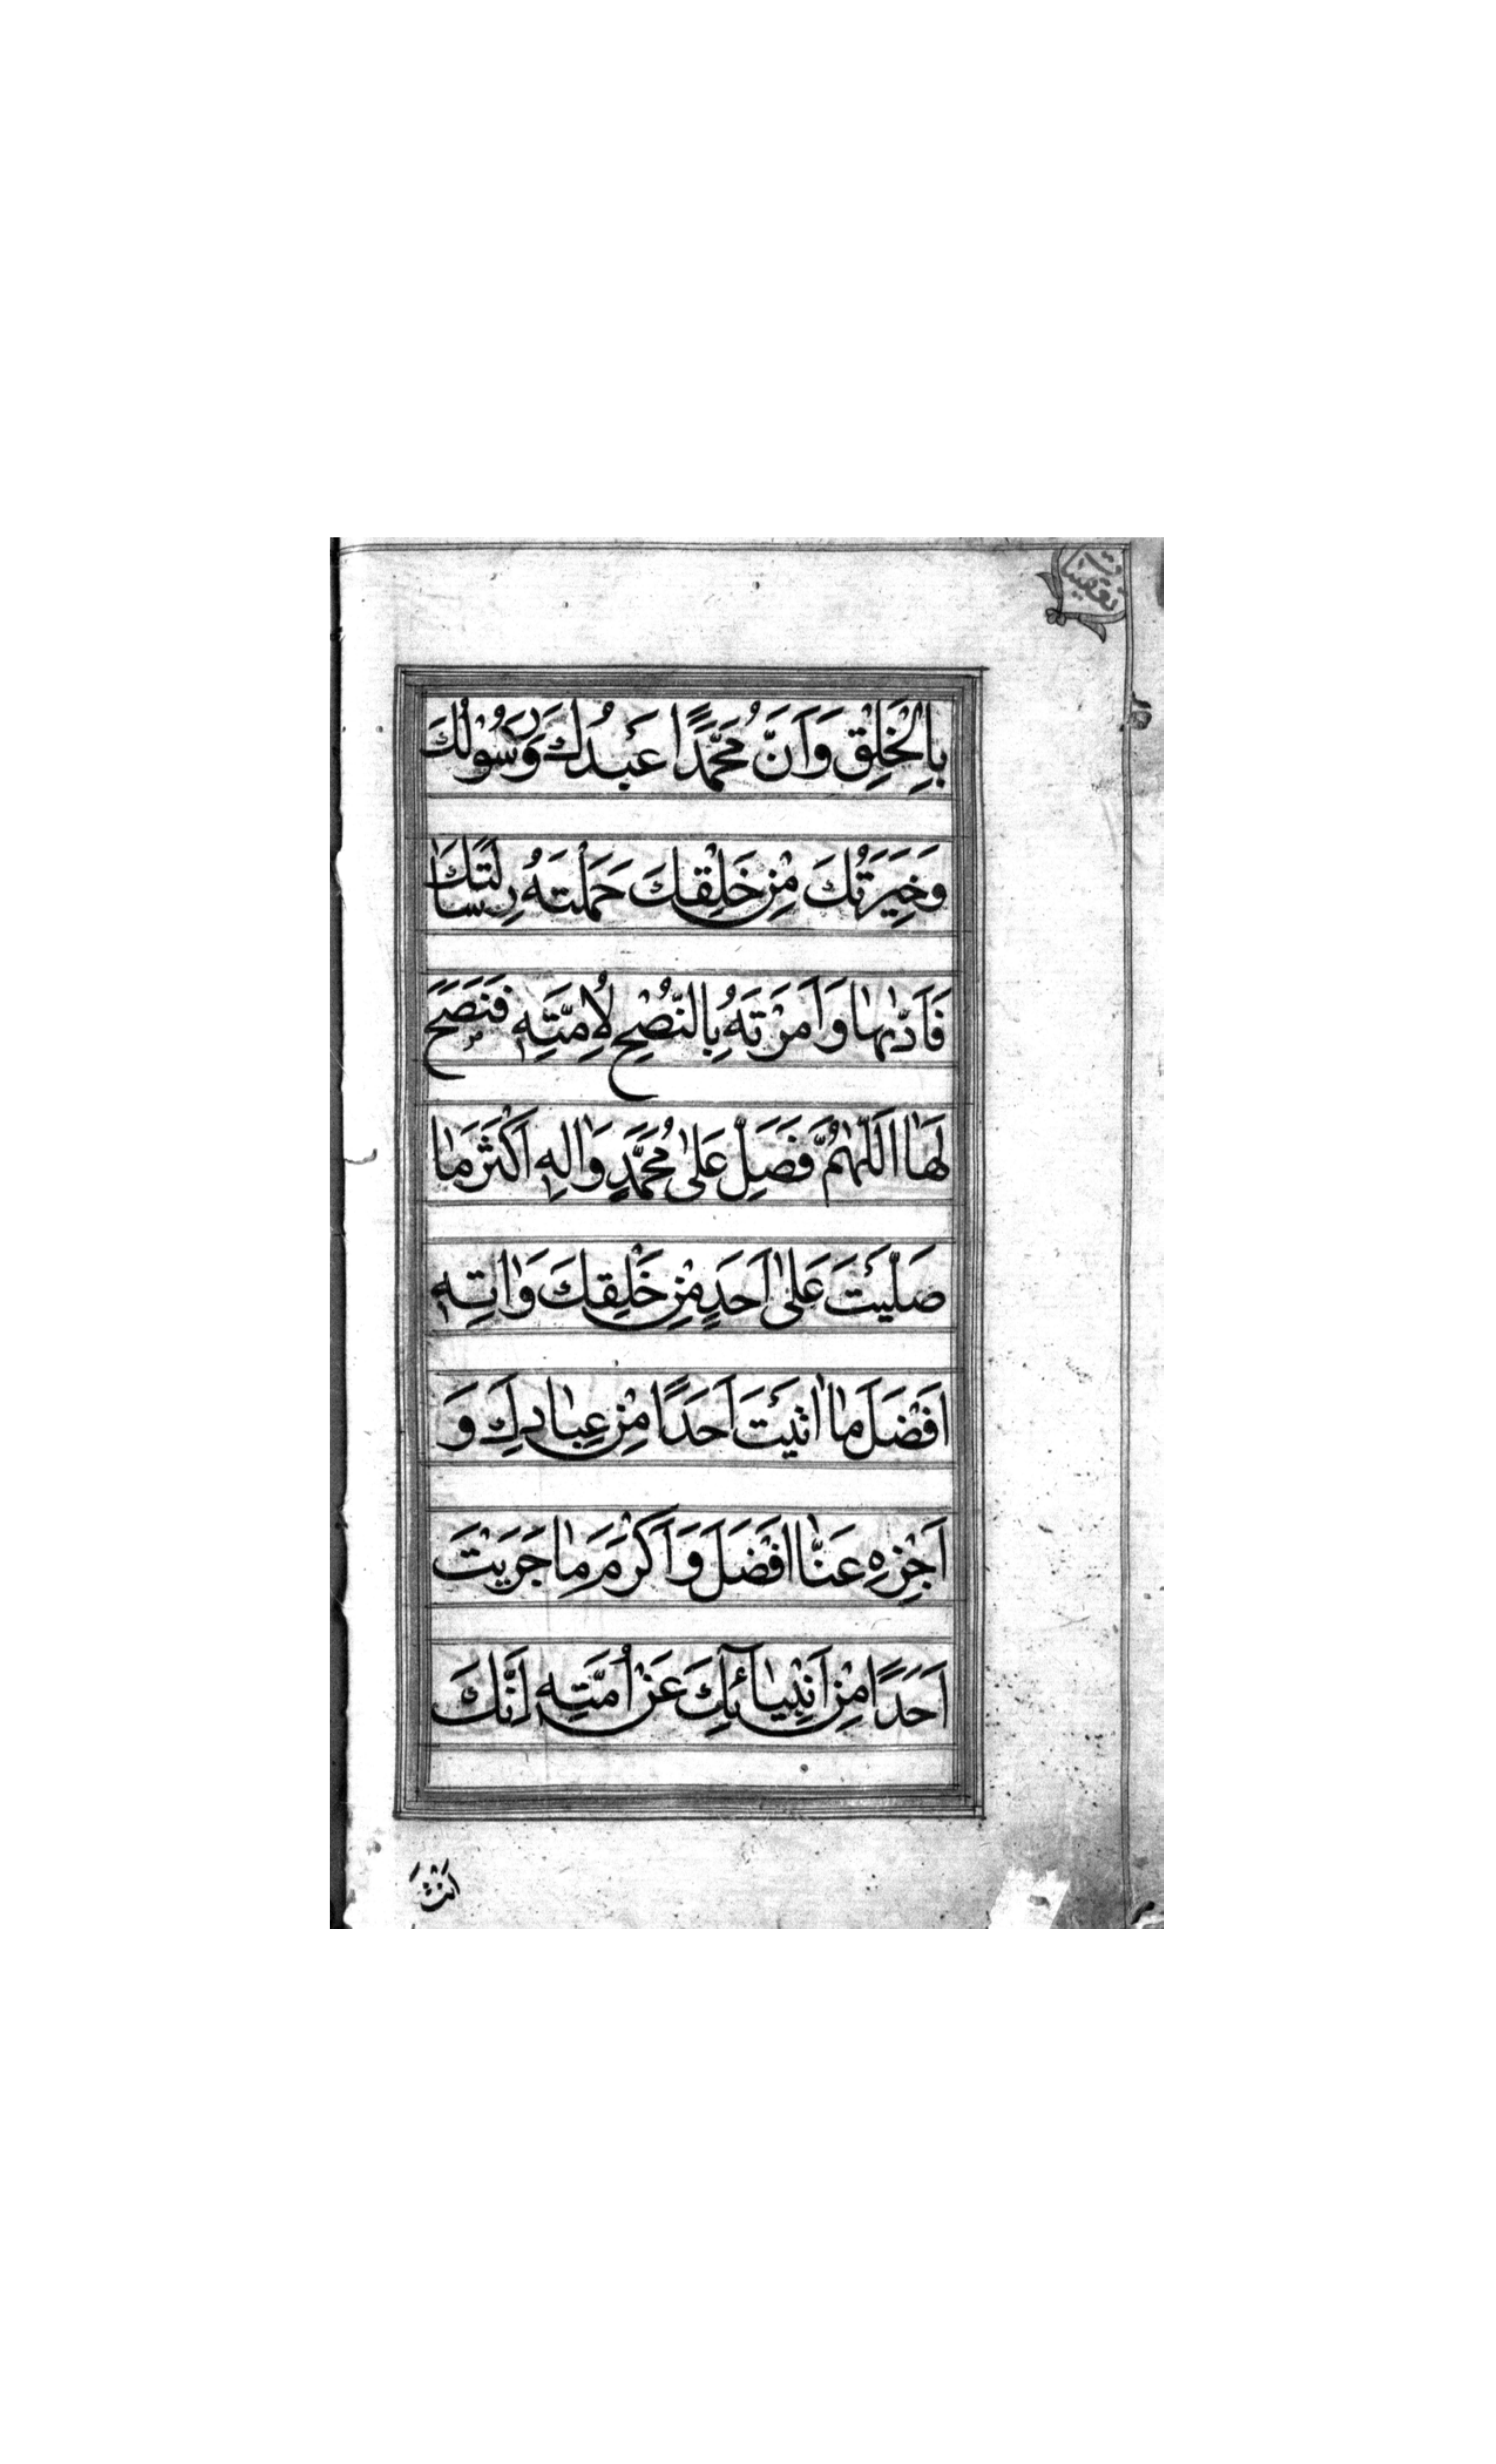 بِالْخَلْقِ وَاَنَّ مُحَمَّدًا عَبْدُكَ وَرَسُوْلُكَ
وَخِيَرَتُكَ مِنْ خَلْقِكَ حَمَلْتَهُ رِسَالَتَكَ
فَاَدّٰىهٰا وَاَمَرْتَهُ بِالنُّصْحِ لِاُمَّتِهٖ فَنَصَحَ
لَهٰا اَللّٰهُمَّ فَصَلِّ عَلٰى مُحَمَّدٍ وَاٰلِهٖ اَكْثَرَ مٰا
صَلَّيْتَ عَلٰى اَحَدٍ مِنْ خَلْقِكَ وَاٰتِهٖ
اَفْضَلَ مٰا اٰتَيْتَ اَحَدًا مِنْ عِبٰادِكَ وَ
اَجْزِهِ عَنّٰا اَفْضَلَ وَاَكْرَمَ مٰا جَزَيْتَ
اَحَدًا مِنْ اَنْبِيٰآئِكَ عَنْ اُمَّتِهٖ اِنَّكَ
اَنْتَ